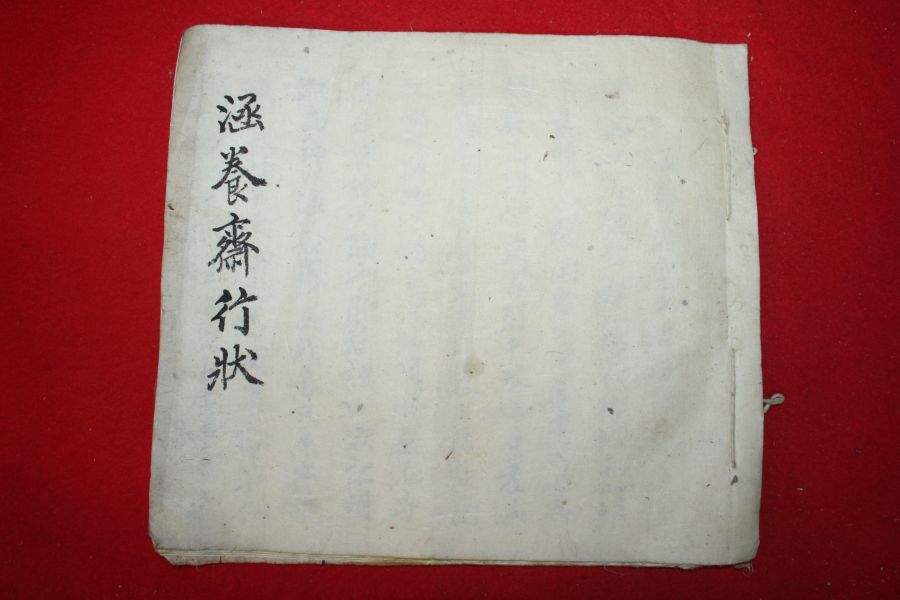 涵養齋行狀